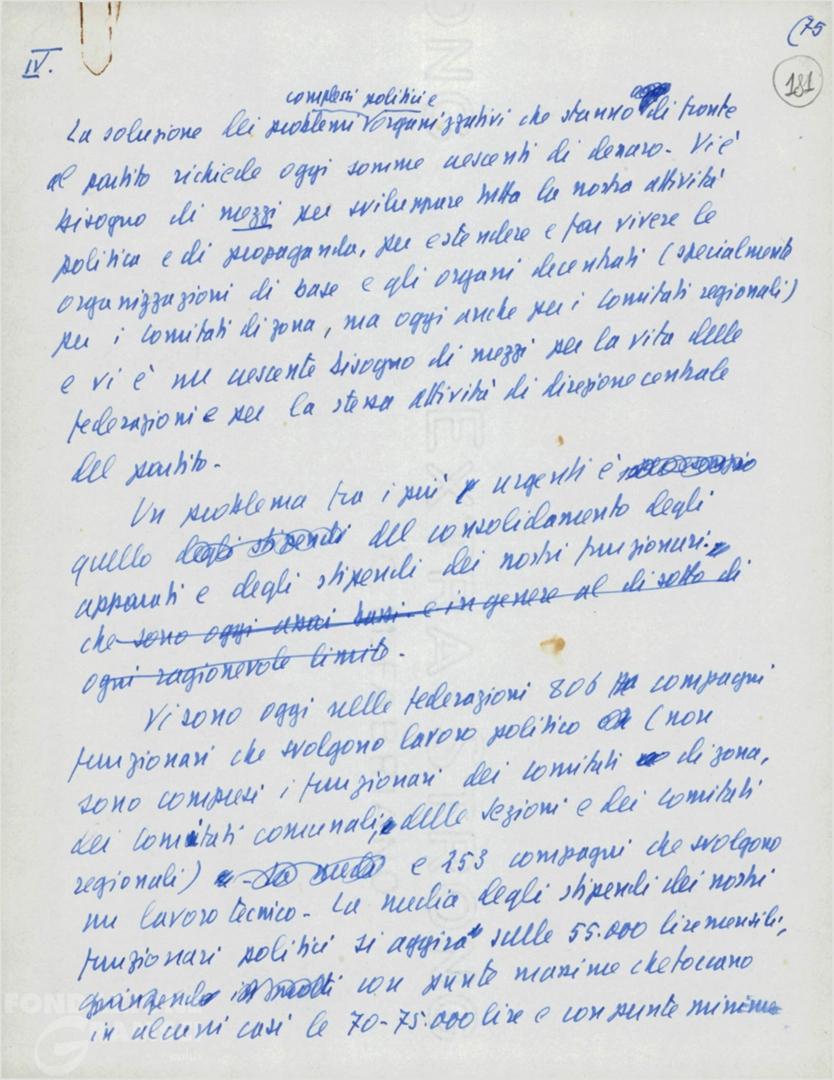 (75
IV.
181
complessi politici e
La soluzione dei problemi organizzativi che stanno di fronte
al partito richiede oggi somme crescenti di denaro. Vi è
bisogno di mezzi per sviluppare tutta la nostra attività
politica e di propaganda, per estendere e far vivere le
organizzazioni di base e gli organi decentrati (specialmente
per i comitati di zona, ma oggi anche per i comitati regionali)
e vi è un crescente bisogno di mezzi per la vita delle
federazioni e per la stessa attività di direzione centrale
del partito.
Un problema tra i più urgenti è
quello degli stipendi del consolidamento degli
apparati e degli stipendi dei nostri funzionari.
che sono oggi assai bassi e in genere al di sotto di
ogni ragionevole limite.
Vi sono oggi nelle federazioni 806 compagni
funzionari che svolgono lavoro politico (non
sono compresi i funzionari dei comitati di zona,
dei comitati comunali, delle sezioni e dei comitati
regionali) La media e 253 compagni che svolgono
un lavoro tecnico. La media degli stipendi dei nostri
funzionari politici si aggira sulle 55.000 lire mensili,
in molti con punte massime che toccano
in alcuni casi le 70-75.000 lire e con punte minime